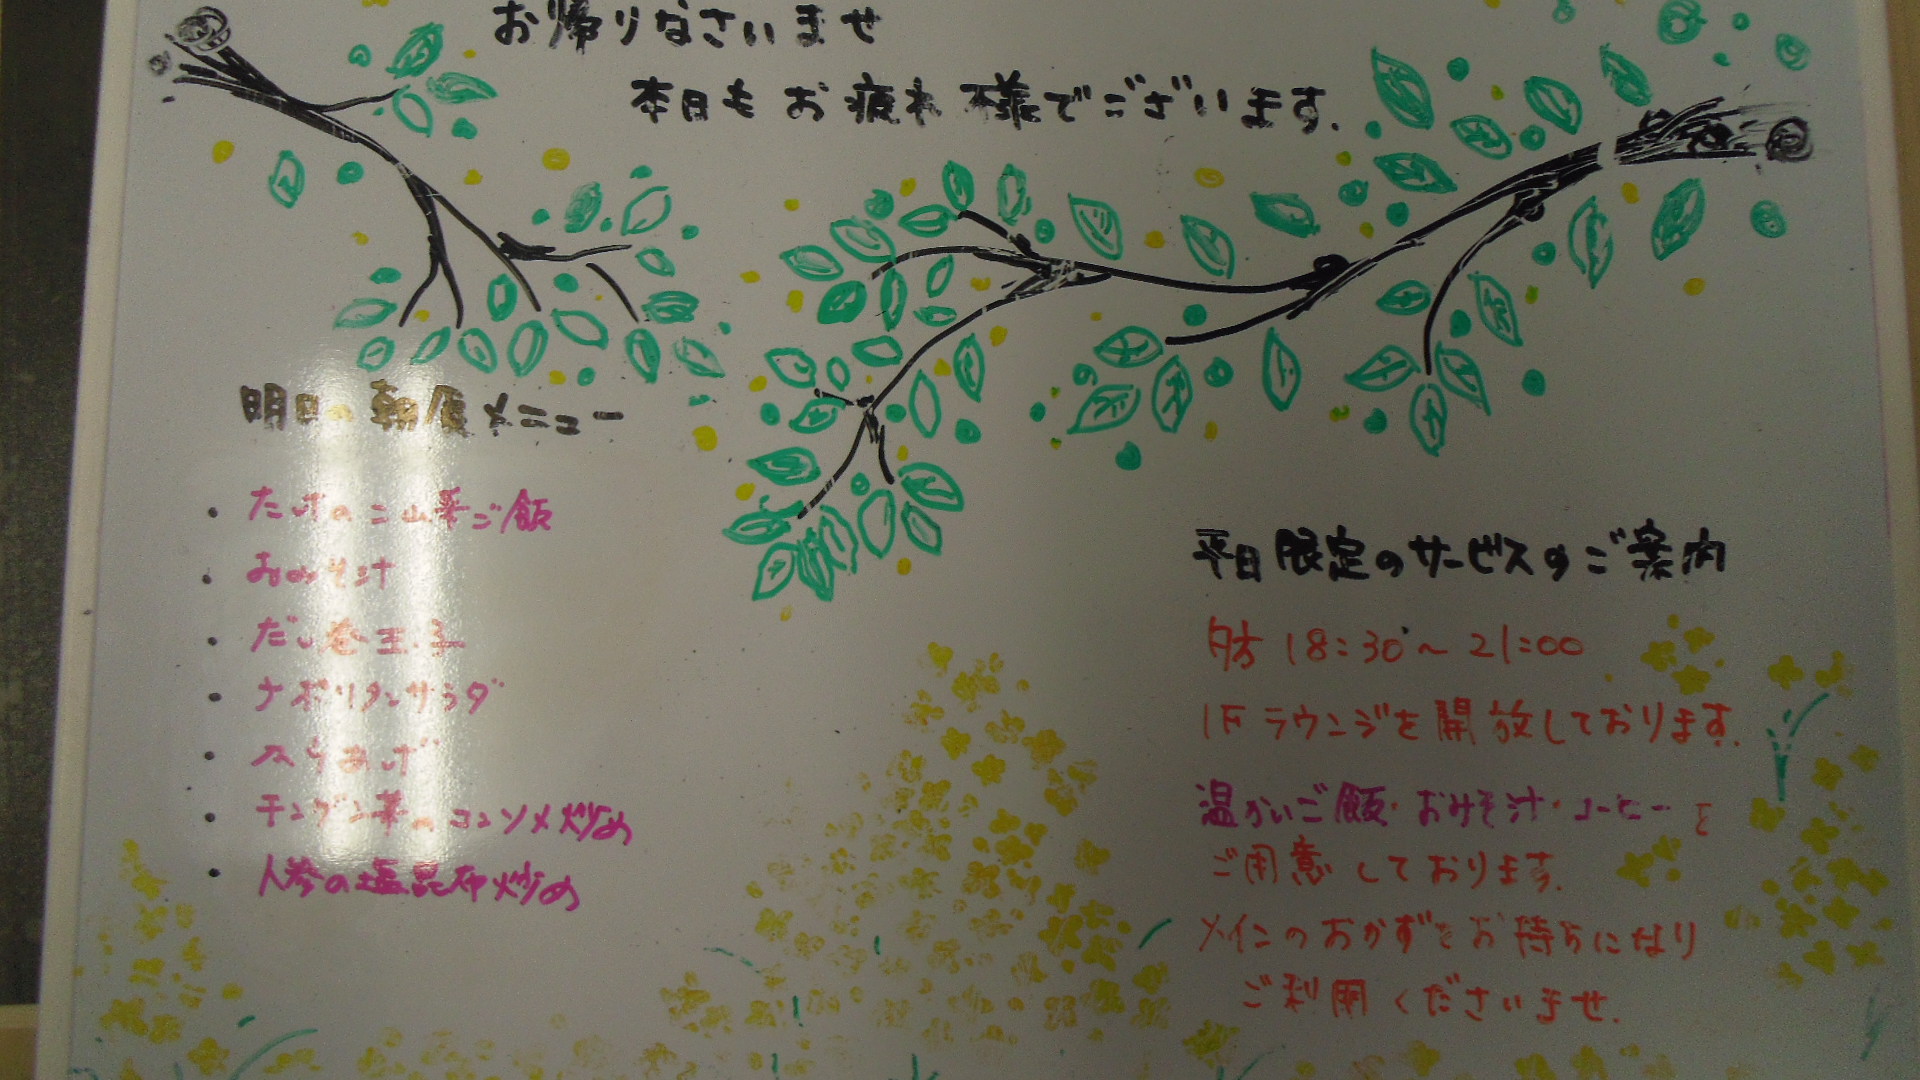 お帰りなさいませ
本日もお疲れ様でございます.
明日の朝食メニュー
・たけのこ山菜ご飯
・おみそ汁
・だし巻玉子
・ナポリタンサラダ
・チンゲン菜のコンソメ炒め
・人参の塩昆布炒め
平日限定のサービスのご案内
夕方 18:30〜21:00
1Fラウンジを開放しております.
温かいご飯・おみそ汁・コーヒーを
ご用意しております.
メインのおかずをお持ちになり
ご利用くださいませ.